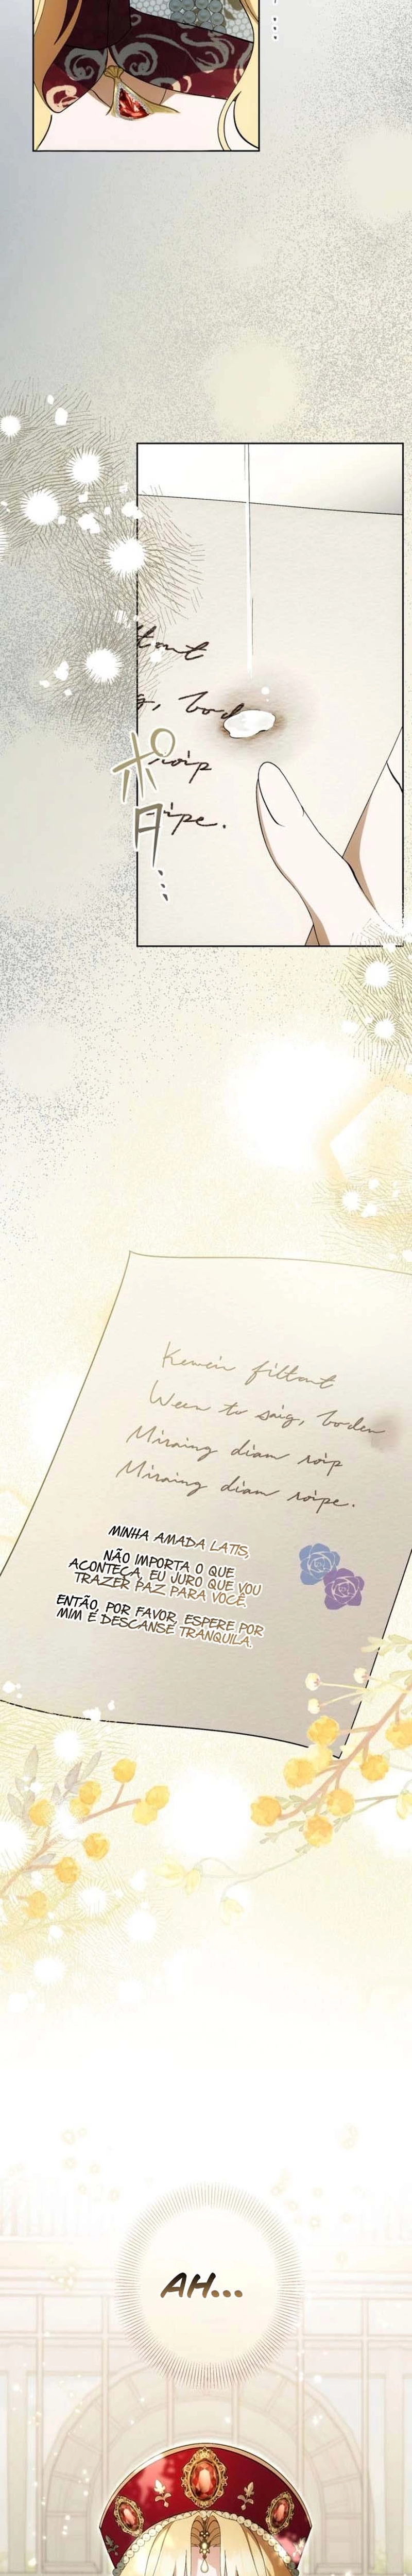 ポロ...
Kemein filtont
Ween tu saig, boden
Miraing diam roip
Miraing diam roipe.
MINHA AMADA LATIS,
NÃO IMPORTA O QUE
ACONTEÇA, EU JURO QUE VOU
TRAZER PAZ PARA VOCÊ.
ENTÃO, POR FAVOR, ESPERE POR
MIM E DESCANSE TRANQUILA.
AH...